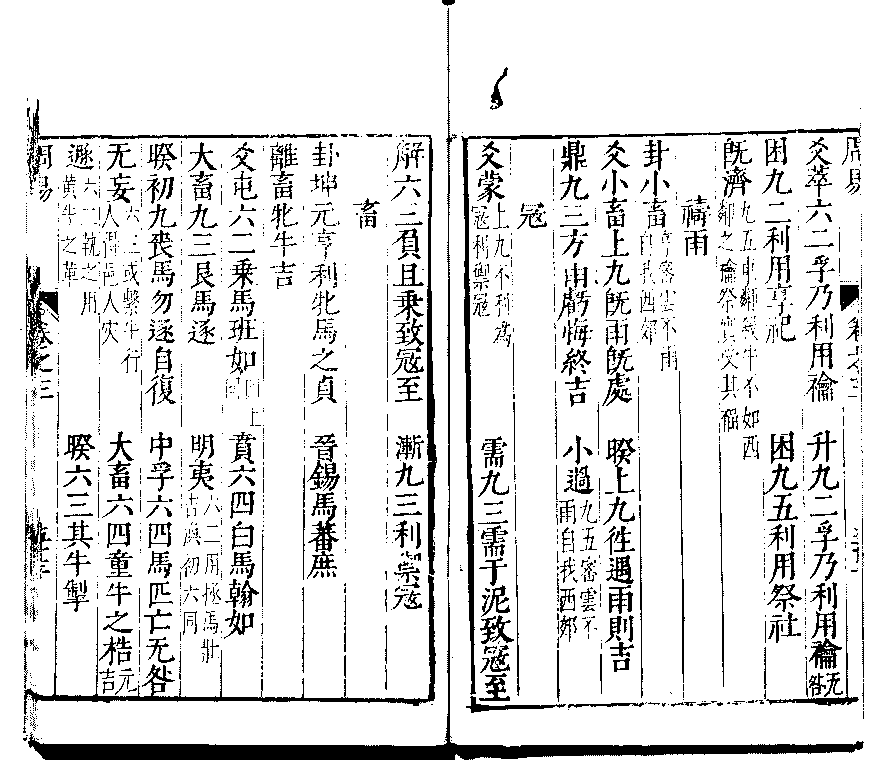 爻萃六二孚乃利用禴　升九二孚乃利用禴无咎
困九二利用享祀　困九五利用祭祀
既濟九五東鄰殺牛不如西鄰之禴祭實受其福
禱雨
卦小畜亨密雲不雨自我西郊
爻小畜上九既雨既處　睽上九往遇雨則吉
鼎九三方雨虧悔終吉　小過九五密雲不雨自我西郊
冦
爻蒙上九不利為冦利禦冦　需九三需于泥致冦至
解六三負且乘致冦至　漸九三利禦冦
畜
卦坤元亨利牝馬之貞　晉錫馬蕃庶
離畜牝牛吉
爻屯六二乘馬班如四上同　賁六四白馬翰如
大畜九三良馬逐　明夷六二用拯馬壯吉渙初六同
睽初九喪馬勿逐自復　中孚六四馬匹亡无咎
无妄六三或繫牛行人得邑人災　大畜六四童牛之梏元吉
遯六二執之用黃牛之革　睽六三其牛掣
周易　卷之三